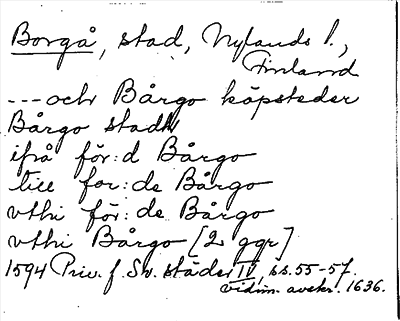 Borgå, stad, Nylands l.,
Finland
---och Bårgo köpsteder
Bårgo stadh
ifrå för:d Bårgo
till for:de Bårgo
vthi för:de Bårgo
vthi Bårgo [2 ggr]
1594 Priv. f. Sv. städer IV, ss.55-57.
Vidim. avskr. 1636.